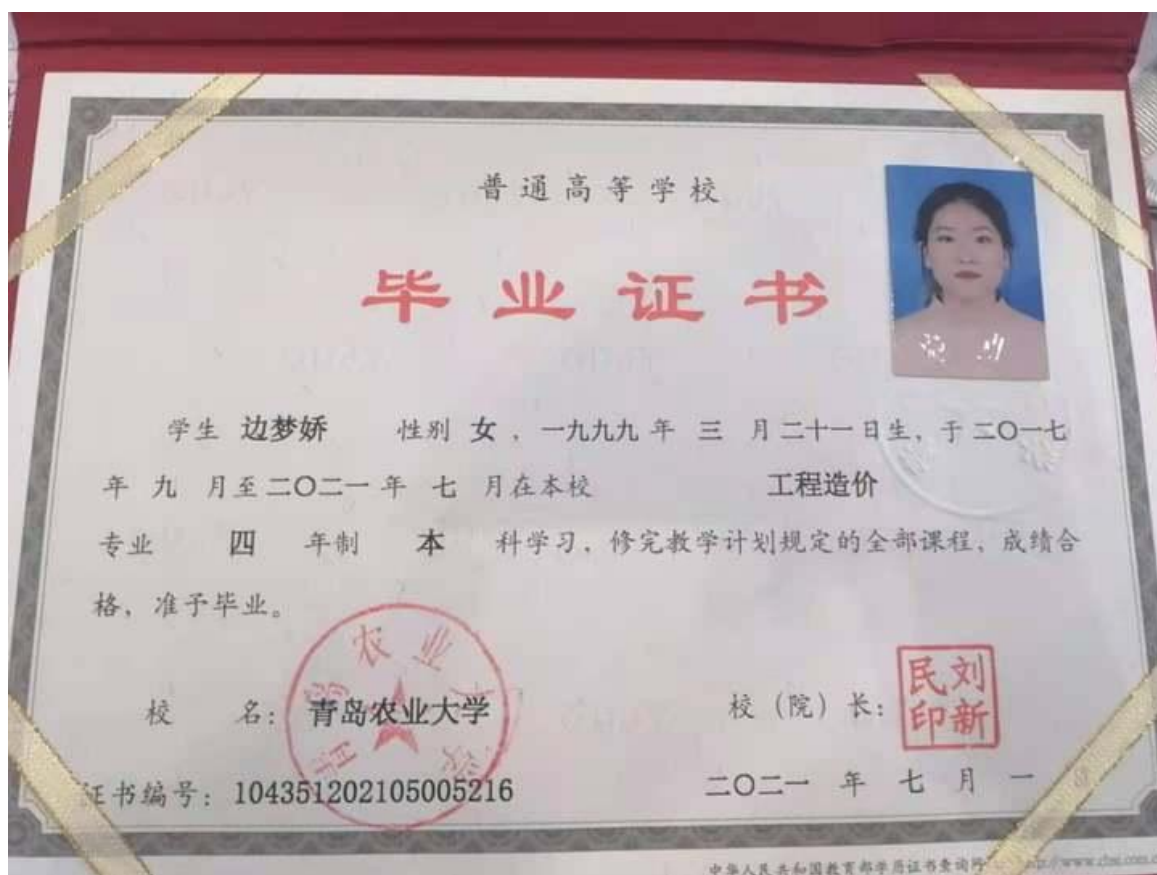 普通高等学校
毕业证书
学生 边梦娇 性别 女，一九九九 年 三 月 二十一 日生，于 二〇一七
年 九 月至 二〇二一 年 七 月在本校 工程造价
专业 四 年制 本 科学习，修完教学计划规定的全部课程，成绩合
格，准予毕业。
青岛农业大学
校 名：青岛农业大学
校（院）长：
刘新民印
证书编号：104351202105005216
二〇二一 年 七 月 一
中华人民共和国教育部学历证书查询网
http://www.chsi.com.c